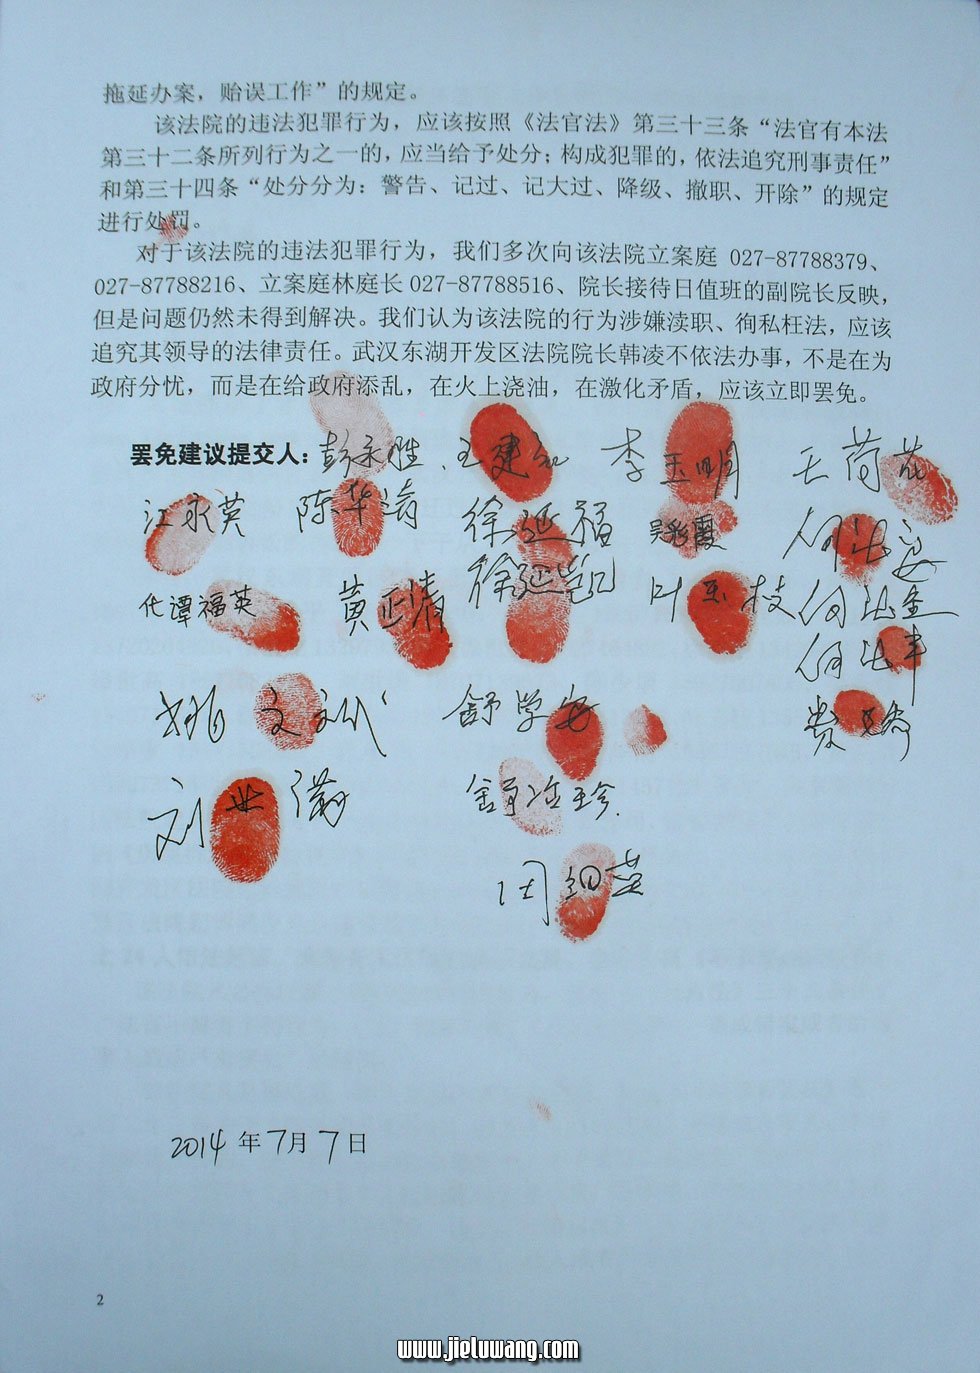 拖延办案，贻误工作”的规定。
该法院的违法犯罪行为，应该按照《法官法》第三十三条“法官有本法
第三十二条所列行为之一的，应当给予处分；构成犯罪的，依法追究刑事责任”
和第三十四条“处分分为：警告、记过、记大过、降级、撤职、开除”的规定
进行处罚。
对于该法院的违法犯罪行为，我们多次向该法院立案庭 027-87788379、
027-87788216、立案庭林庭长 027-87788516、院长接待日值班的副院长反映，
但是问题仍然未得到解决。我们认为该法院的行为涉嫌渎职、徇私枉法，应该
追究其领导的法律责任。武汉东湖开发区法院院长韩凌不依法办事，不是在为
政府分忧，而是在给政府添乱，在火上浇油，在激化矛盾，应该立即罢免。
罢免建议提交人：彭永胜、王建 李玉明 王荷花
江永英 陈华清 徐延福 吴彩霞
代谭福英 黄正清 徐延凯 叶玉枝
文斌 舒学安
刘
周细英
2014 年 7 月 7 日
2
www.jieluwang.com